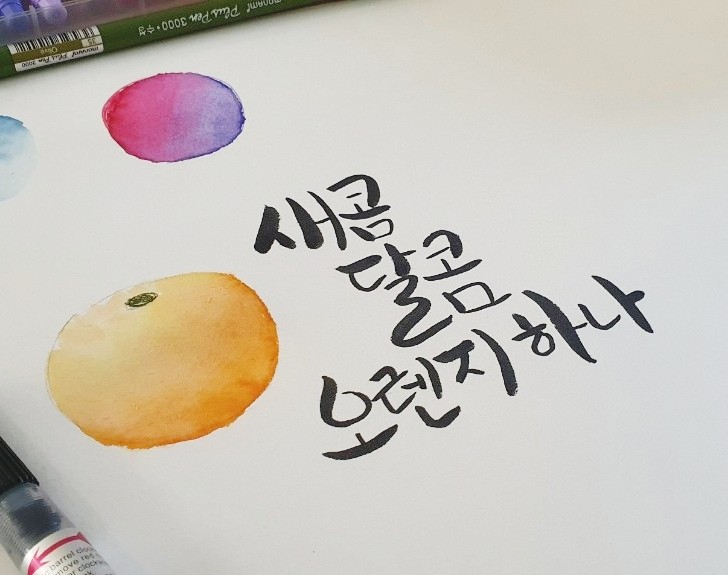 monami Plus Pen 3000 • 수성
monami Plus Pen 3000
Olive
새콤
달콤
오렌지 하나
barrel clo
move red
clockw